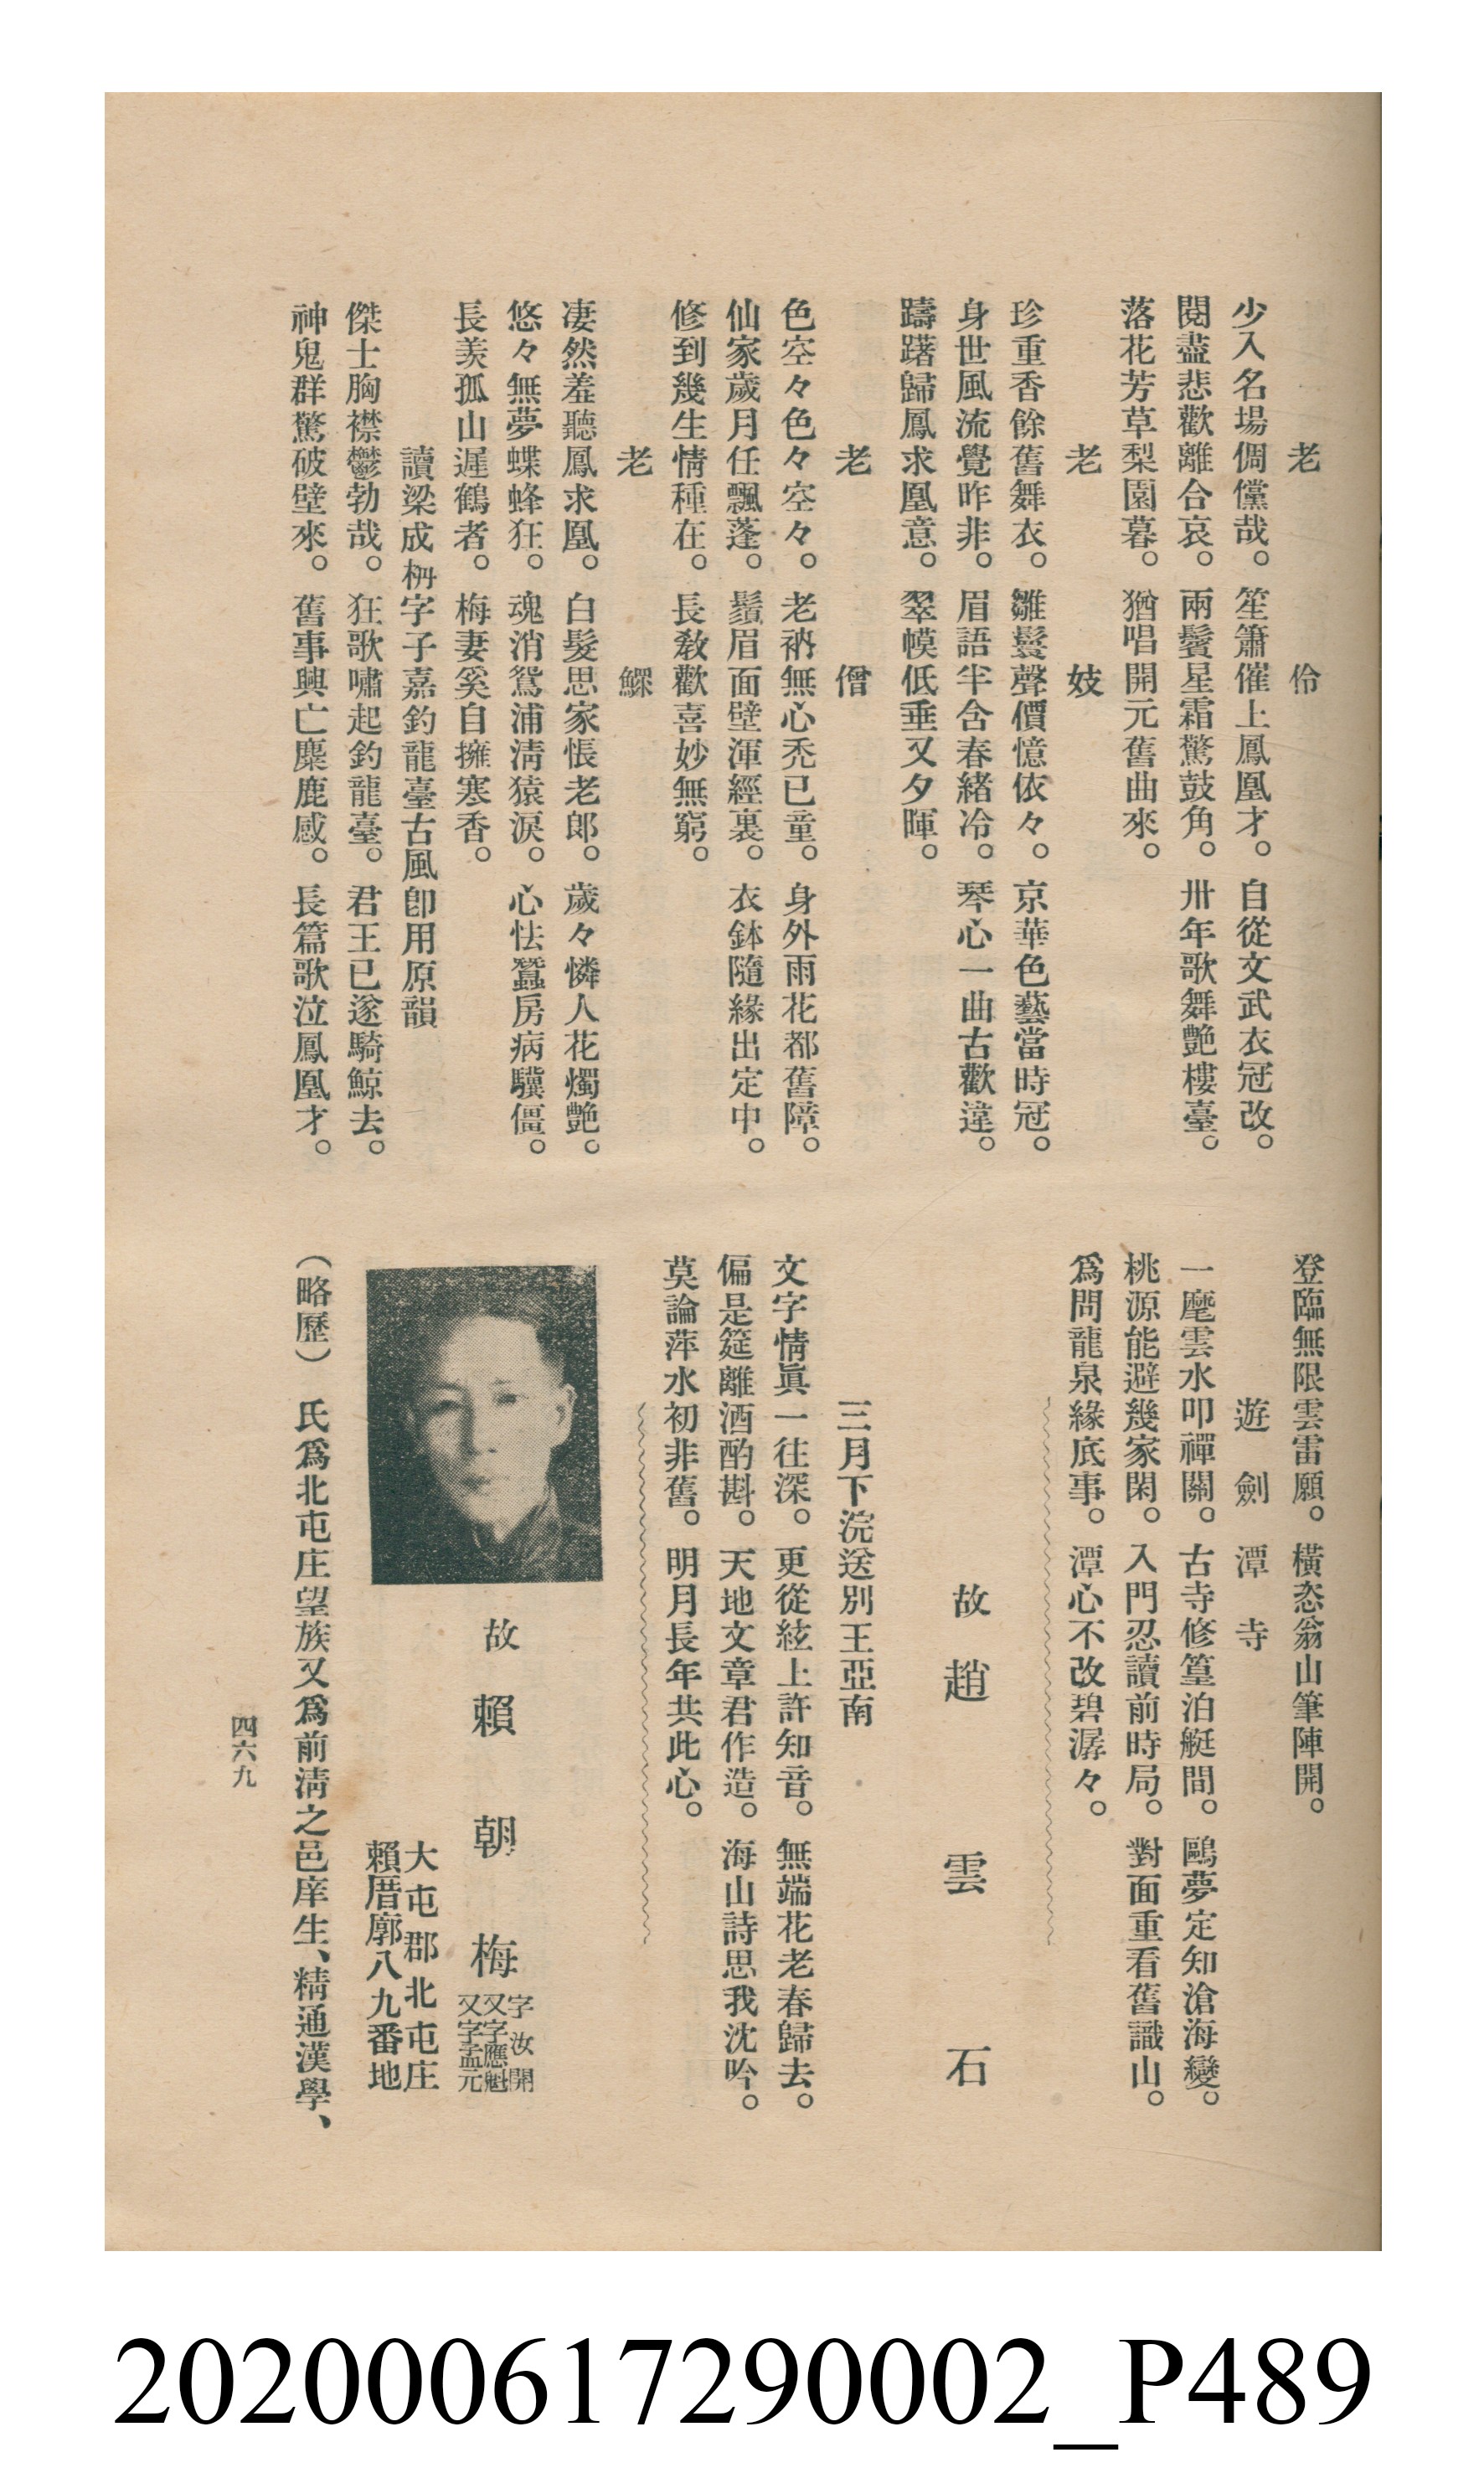 老　伶
少入名場倜儻哉。笙簫催上鳳凰才。自從文武衣冠改。
閱盡悲歡離合哀。兩鬢星霜驚鼓角。卅年歌舞艷樓臺。
落花芳草梨園暮。猶唱開元舊曲來。
老　妓
珍重香餘舊舞衣。雛鬟聲價憶依々。京華色藝當時冠。
身世風流覺昨非。眉語半含春緒冷。琴心一曲古歡違。
躊躇歸鳳求凰意。翠幙低垂又夕暉。
老　僧
色空々色々空々。老衲無心禿已童。身外雨花都舊障。
仙家歲月任飄蓬。鬚眉面壁渾經裏。衣鉢隨緣出定中。
修到幾生情種在。長教歡喜妙無窮。
老　鰥
凄然羞聽鳳求凰。白髮思家悵老郎。歲々憐人花燭艷。
悠々無夢蝶蜂狂。魂消鴛浦清猿淚。心怯蠶房病驥僵。
長羨孤山遲鶴者。梅妻奚自擁寒香。
讀梁成枬字子嘉釣龍臺古風卽用原韻
傑士胸襟鬱勃哉。狂歌嘯起釣龍臺。君王已遂騎鯨去。
神鬼群驚破壁來。舊事興亡麋鹿感。長篇歌泣鳳凰才。
登臨無限雲雷願。橫恣翁山筆陣開。
遊劍潭寺
一麾雲水叩禪關。古寺修篁泊艇間。鷗夢定知滄海變。
桃源能避幾家閑。入門忍讀前時局。對面重看舊識山。
爲問龍泉緣底事。潭心不改碧潺々。
故　趙雲石
三月下浣送別王亞南
文字情眞一往深。更從絃上許知音。無端花老春歸去。
偏是筵離酒酌斟。天地文章君作造。海山詩思我沈吟。
莫論萍水初非舊。明月長年共此心。
故　賴朝梅
字汝開
又字應魁
又字孟元
大屯郡北屯庄
賴厝廓八九番地
（略歷）　氏爲北屯庄望族又爲前淸之邑庠生、精通漢學、
四六九
202000617290002_P489